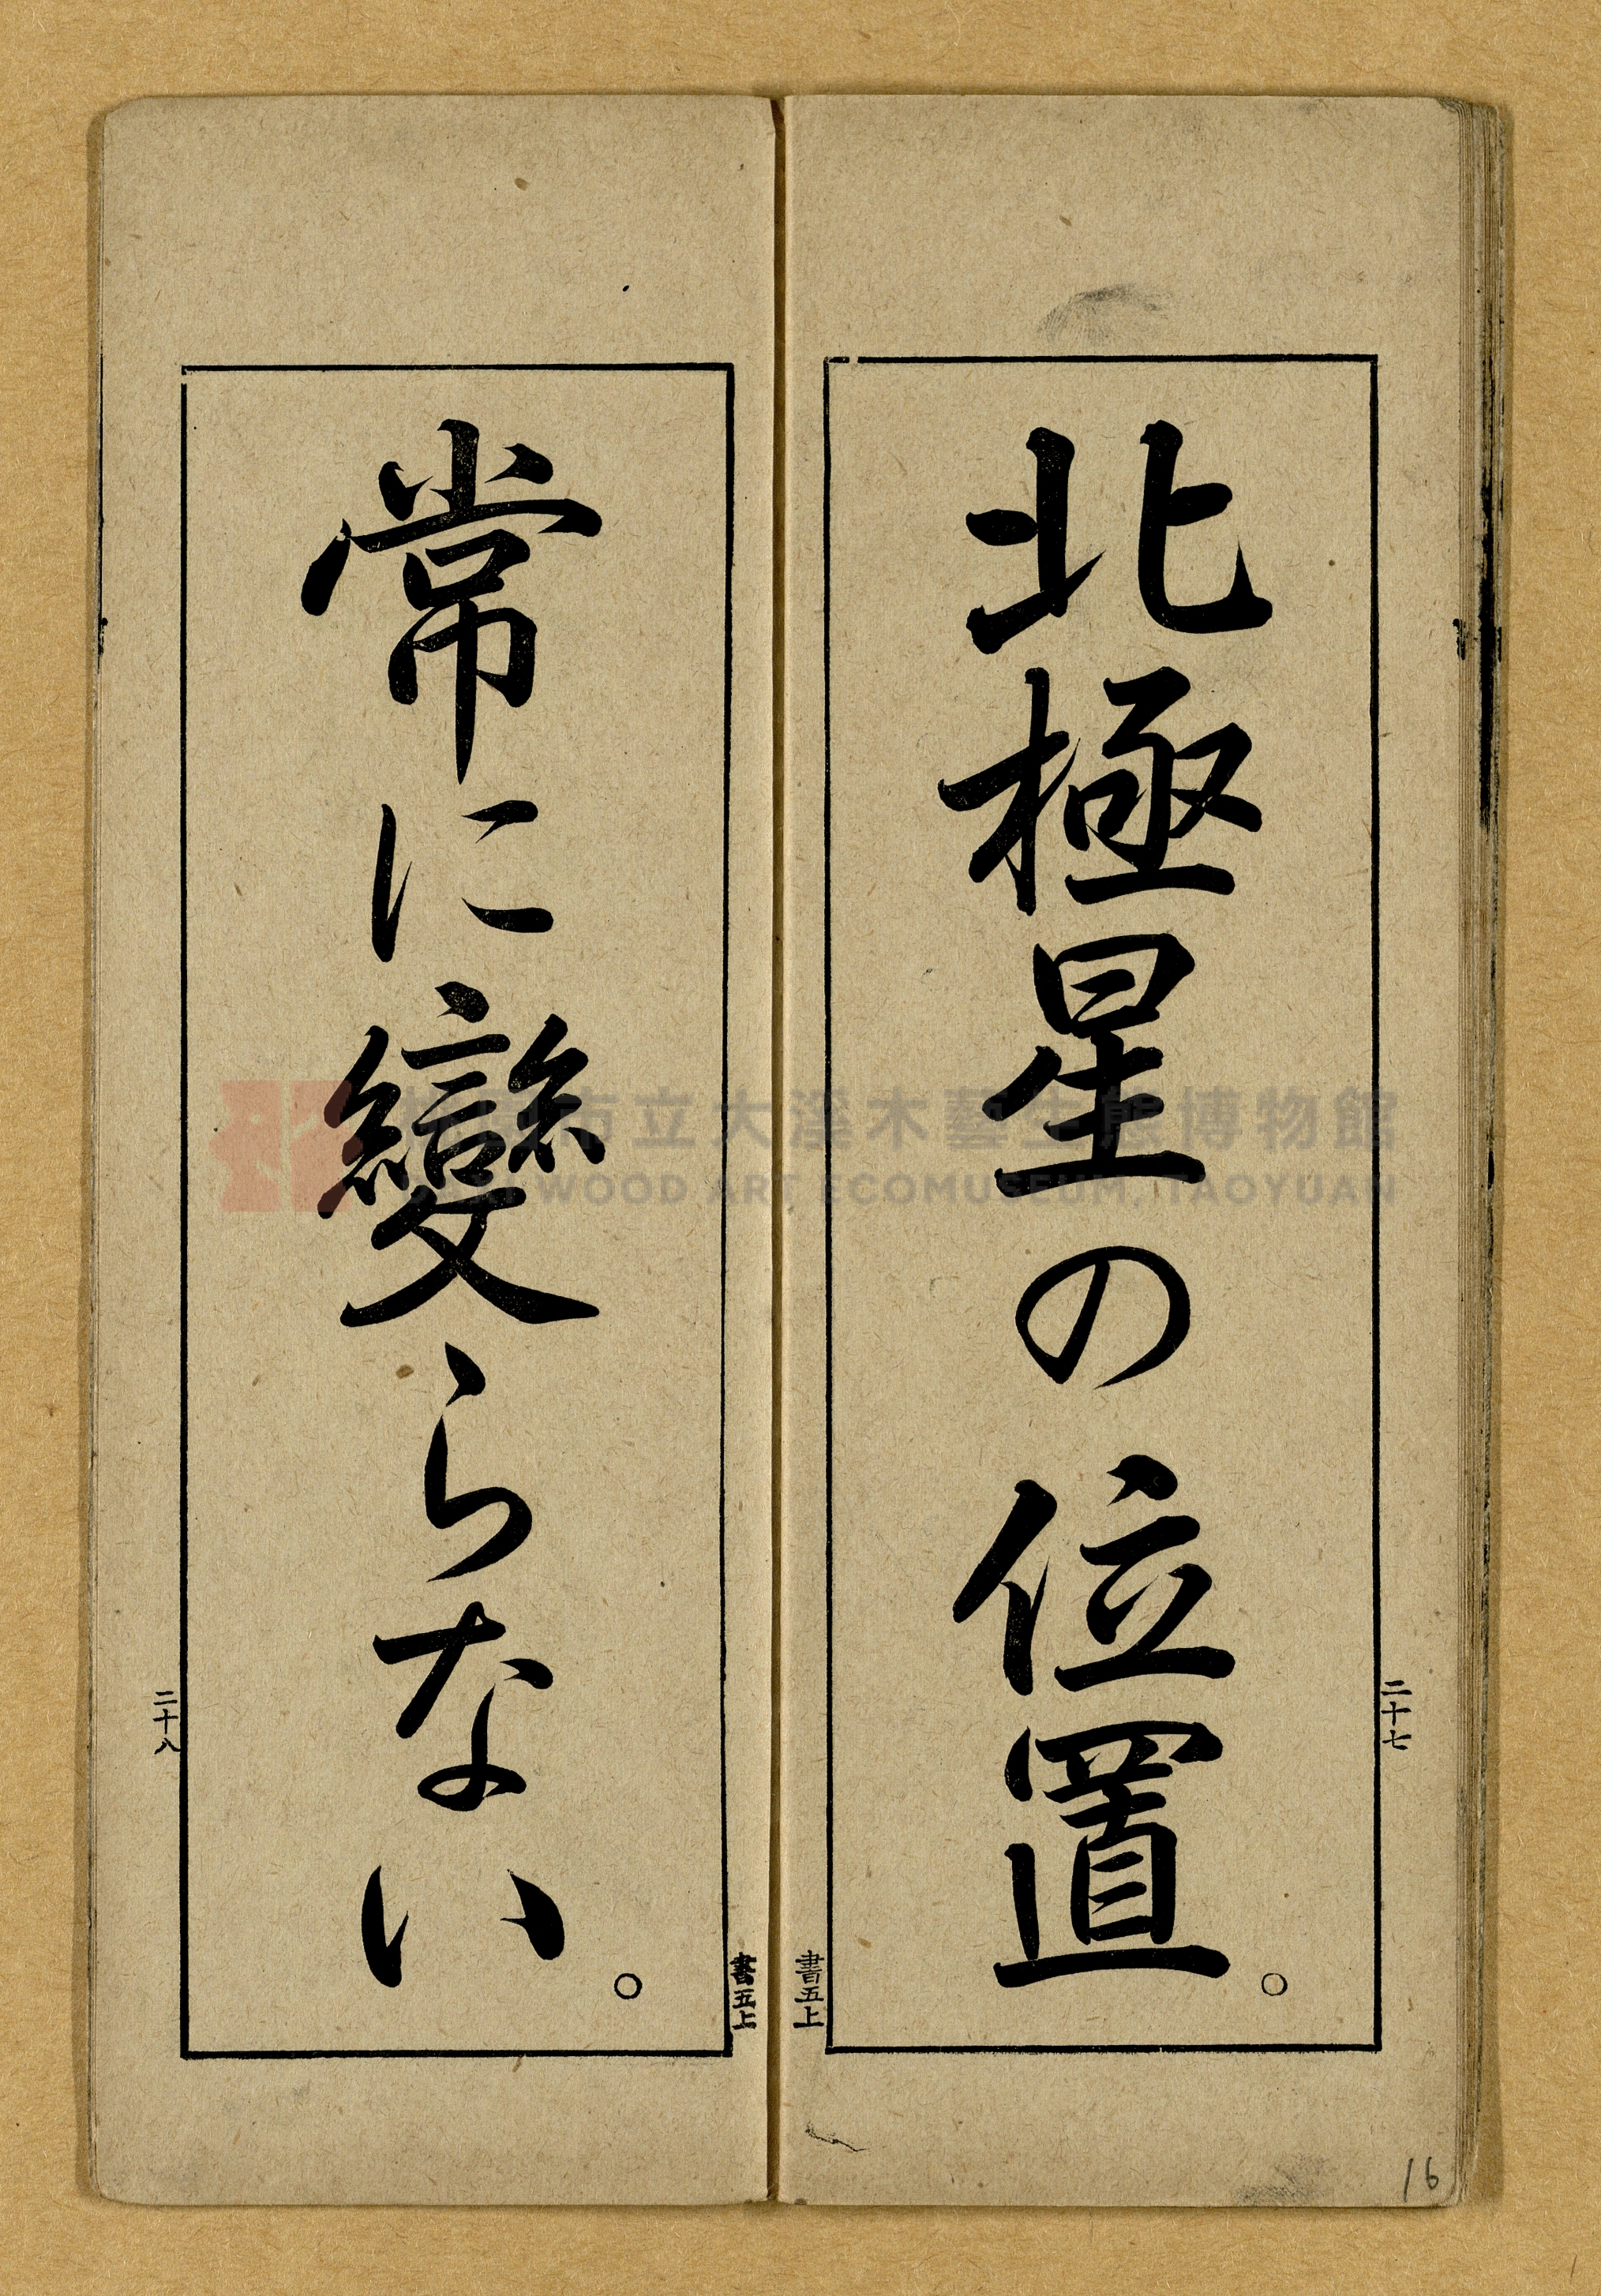 北極星の位置。
二十七
書五上
常に變らない。
書五上
二十八
16
市立大溪木藝生態博物館
WOOD ART ECOMUSEUM, TAOYUAN